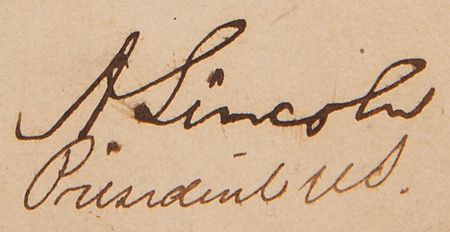 A Lincoln
President U.S.